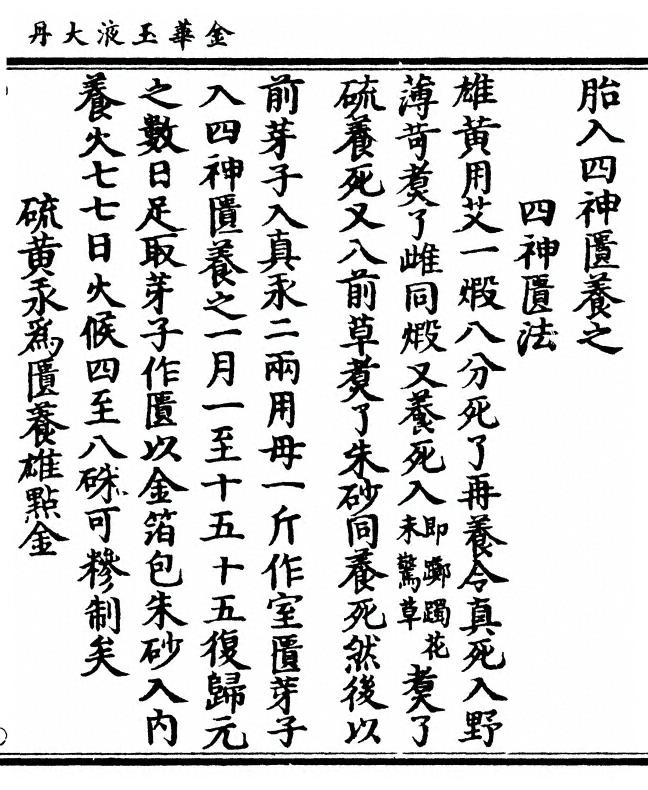 金華玉液大丹
胎入四神匱養之
四神匱法
雄黃用艾一煅八分死了再養令真死入野
薄苛煑了雌同煅又養死入即躑躅花未驚草煑了
硫養死又入前草煑了朱砂同養死然後以
前芽子入真汞二兩用母一斤作室匱芽子
入四神匱養之一月一至十五十五復歸元
之數日足取芽子作匱以金箔包朱砂入內
養火七七日火候四至八硃可糝制矣
硫黃汞爲匱養雄點金